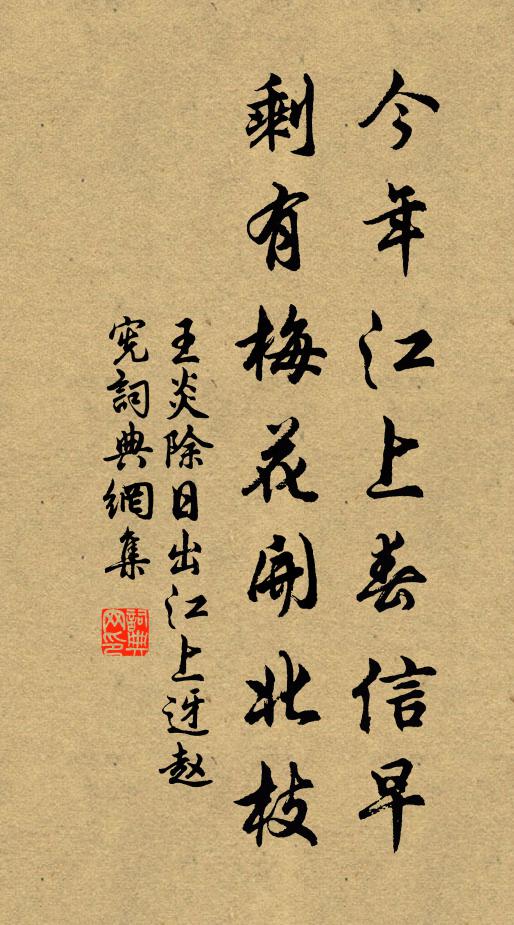 今年江上春信早
剩有梅花開北枝
王炎除日出江上迓赵
宪詞典網集
詞典网印